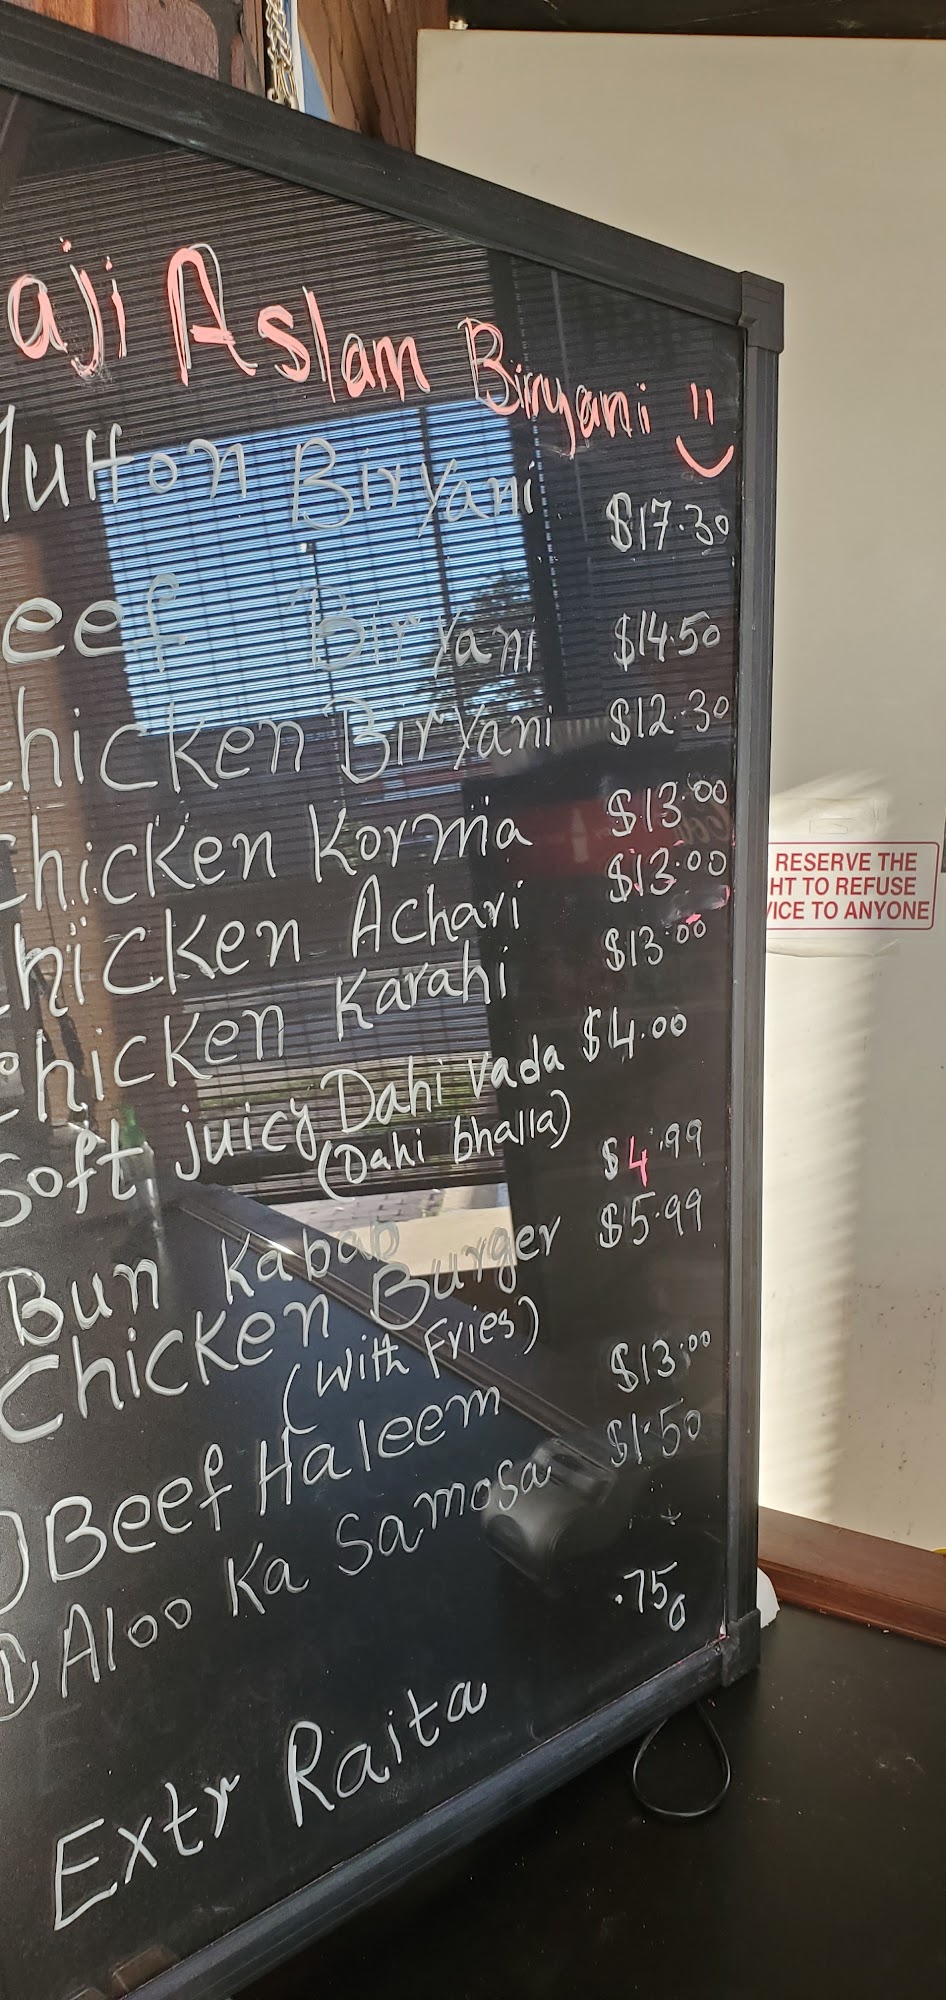 aji Aslam Biryani
Mutton Biryani $17.30
eef Biryani $14.50
Chicken Biryani $12.30
Chicken Korma $13.00
Chicken Achari $13.00
Chicken Karahi $13.00
Soft juicy Dahi Vada $4.00
(Dahi bhalla)
Bun Kabab $4.99
Chicken Burger $5.99
(With Fries)
Beef Haleem $13.00
① Aloo Ka Samosa $1.50
Extr Raita .75¢
RESERVE THE
HT TO REFUSE
VICE TO ANYONE